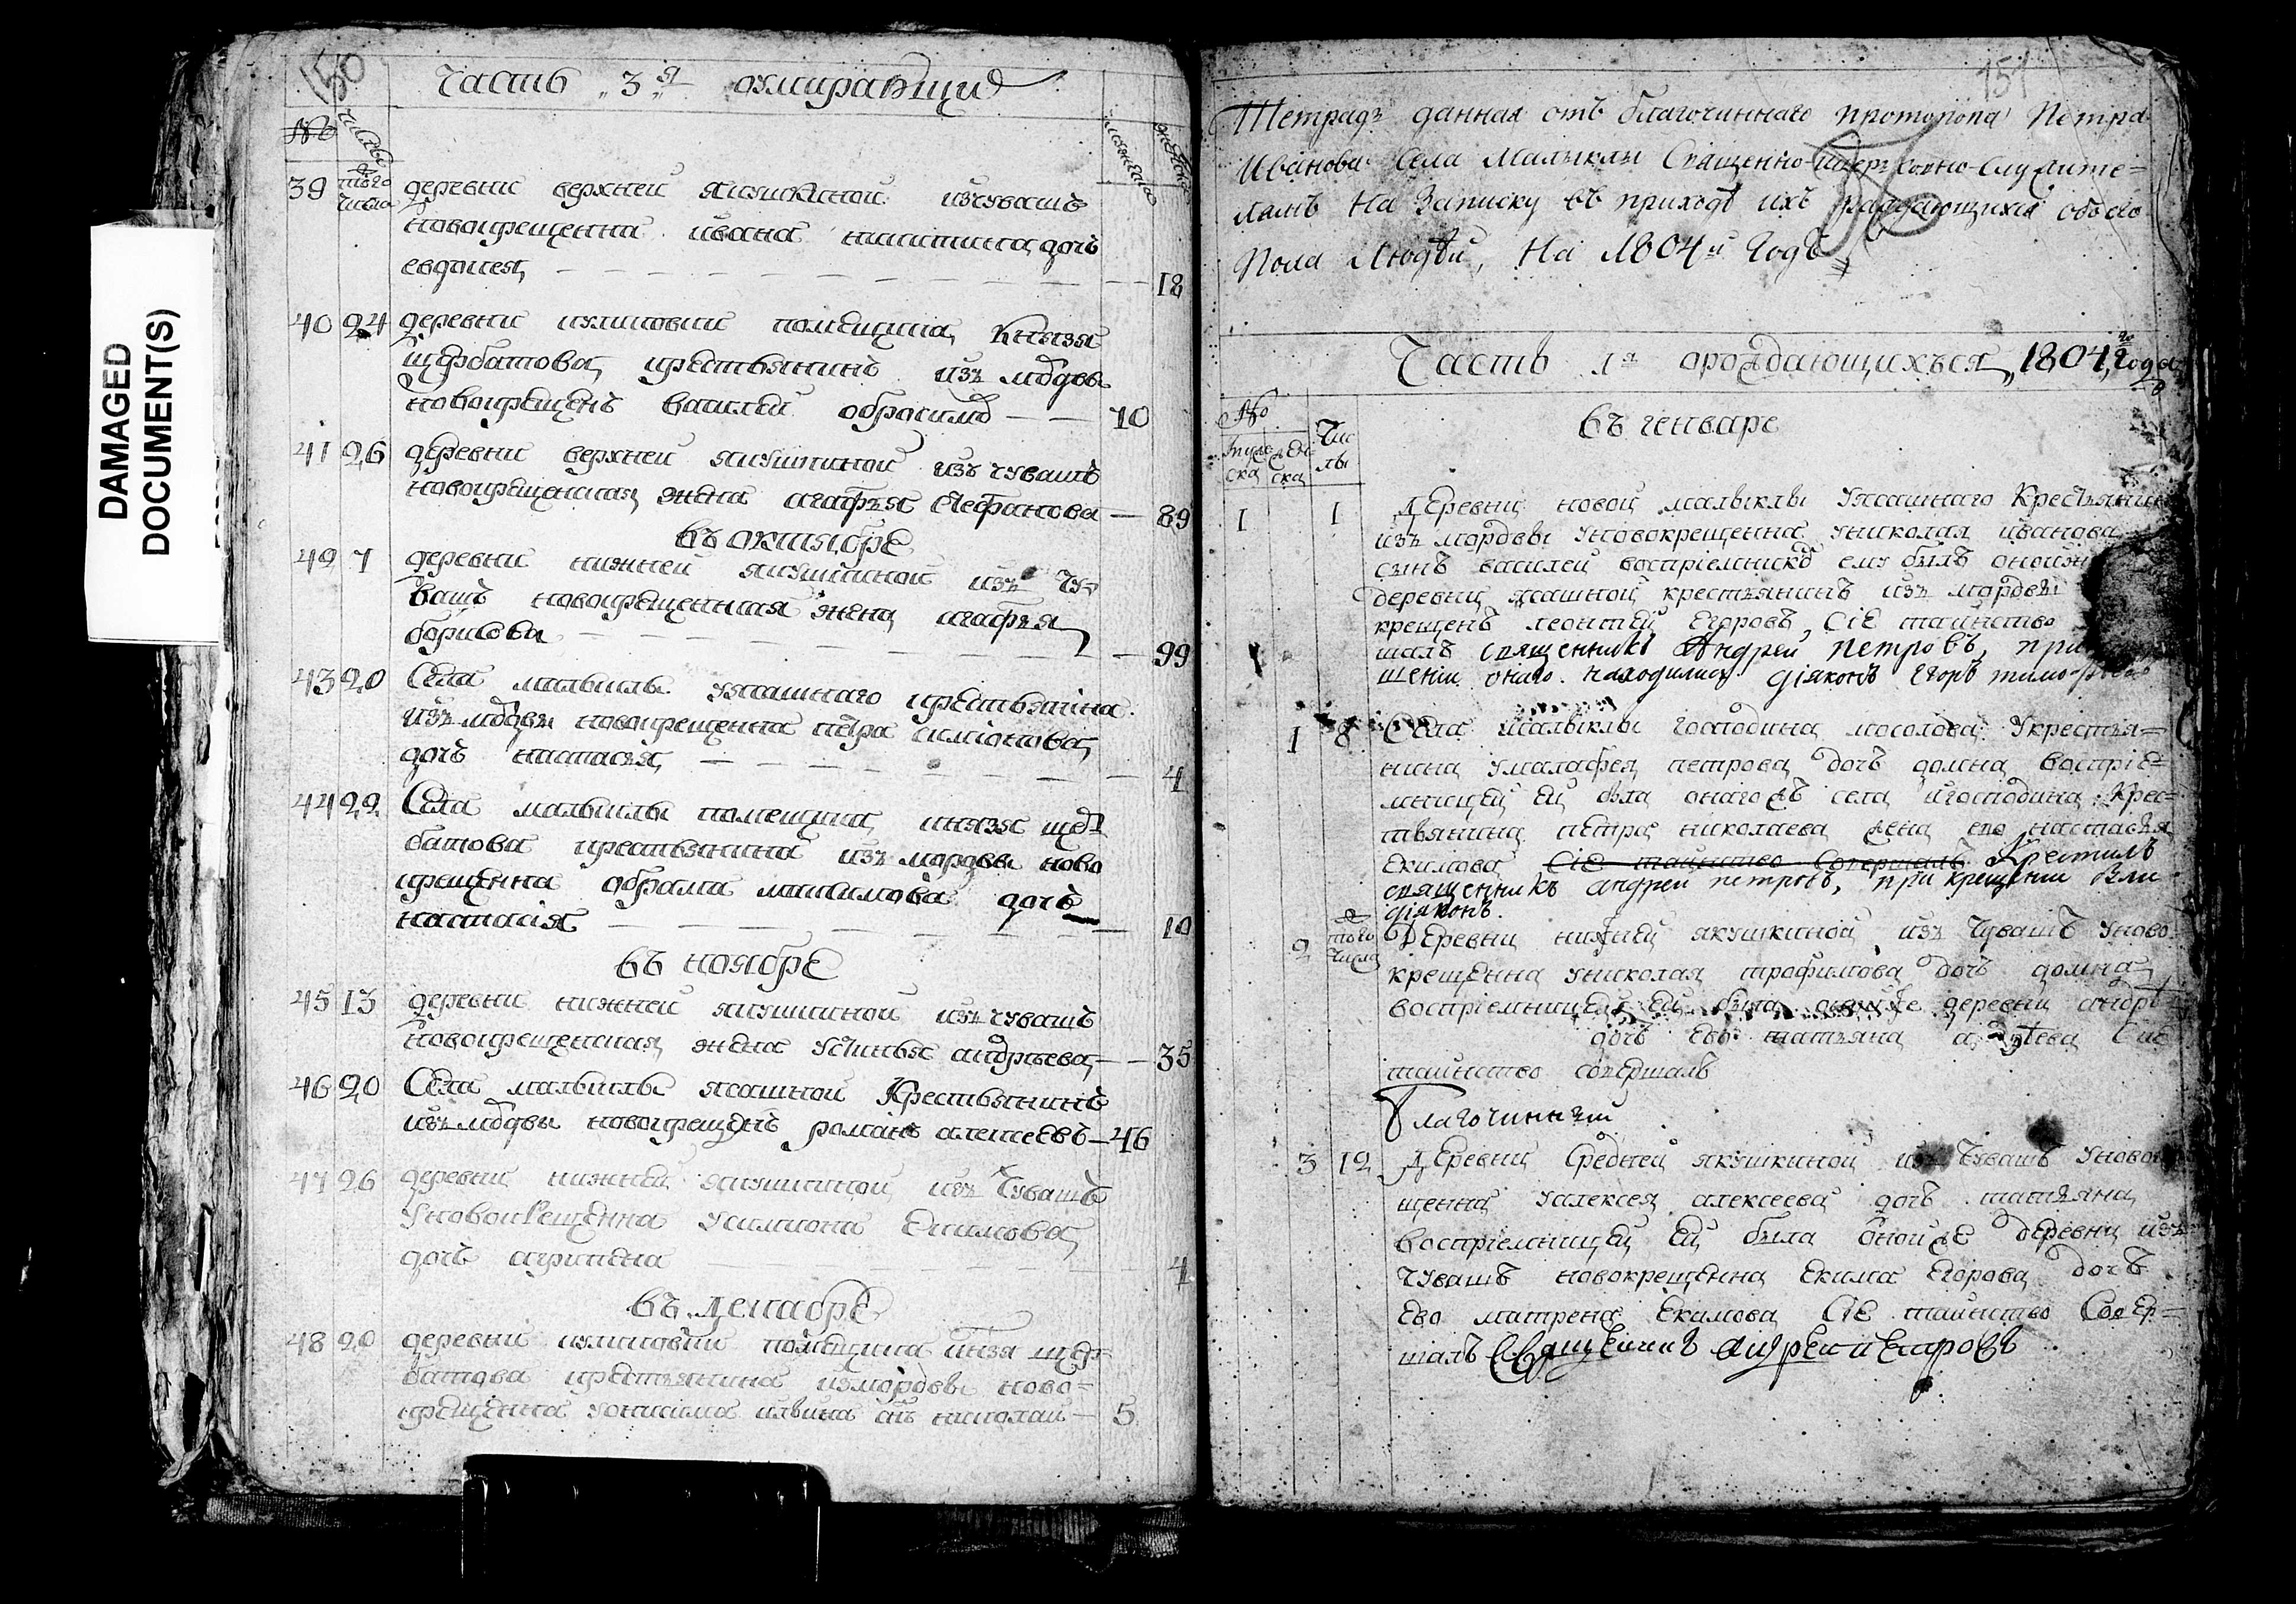 DAMAGED
DOCUMENT(S)
150
Часть „3„я оумирающи
№ числы мужеска женска
39 того числа деревни верхней якушкиной изчувашъ
новокрещенна ивана никитина дочь
евдокея 18
40 24 деревни куликовки помещика Князя
щербатова крестьянинъ изъ мордвы
новокрещенъ василей 70
41 26 деревни верхней якушкиной изъ чувашъ
новокрещенская жена агафья Стефанова 89
въ октябрѣ
42 7 деревни нижней якушкиной изъ чу
вашъ новокрещенская жена агафья
борисова 99
43 20 Села малыклы уясашнаго крестьянина
изъ мордвы новокрещенна петра симионова
дочь настасья 4
44 22 Села малыклы помещика князя щер
батова крестьянина изъ мордвы ново
крещенна абрама максимова дочь
настасія 10
въ ноябрѣ
45 13 деревни нижней якушкиной изъ чувашъ
новокрещенская жена устинья андреева 35
46 20 Села малыклы ясашной Крестьянинъ
изъ мордвы новокрещенъ романъ алексеевъ 46
47 26 деревни нижней якушкиной изъ Чувашъ
Уновокрещенна усимиона Екимова
дочь агрипена 4
въ декабрѣ
48 20 деревни куликовки помещика князя щер
батова крестьянина измордвы ново=
крещенна уонисима сынъ николай 5
151
Тетрадь данная отъ благочиннаго протопопа Петра
Иванова Села Малыклы Священно-церковно-служите=
лямъ На Записку въ приходѣ ихъ раждающихся обоево
Пола Людѣй, На 1804й Годъ
Часть 1я орождающихъся, 1804, года
№ мужеска женска Числы
въ генваре
1 1 Деревни новой малыклы Уясашнаго Крестьянина
изъ мордвы уновокрещенна униколая иванова
сынъ василей воспріемникъ ему былъ
деревни ясашной крестьянинъ изъ мордвы
крещенъ леонтей Егоровъ, Сіе таинство
шалъ священникъ Андрей петровъ, при
щеніи онаго находился діяконъ Егоръ
1 8 Села малыклы господина мосолова Укрестья=
нина умалафея петрова дочь домна воспріе=
мницей ей была онагожъ села игосподина Крес=
тьянина петра николаева жена ево настасья
Екимова Сіе таинство Совершалъ Крестилъ
священникъ андрей петровъ, при крещеніи были
діяконъ.
2 того числа Деревни нижней якушкиной изъ Чувашъ Уново
крещенна униколая трофимова дочь домна
воспріемницей ей была онойже деревни
дочь ево татьяна Сие
таинство совершалъ
Благочинный
3 12 Деревни Средней якушкиной изъ Чувашъ Уновокре
щенна уалексея алексеева дочь татьяна
воспріемницей ей была онойже деревни изъ
чувашъ новокрещенна Екима Егорова дочь
ево матрена Екимова Сіе таинство Совер=
шалъ Священникъ андрей петровъ